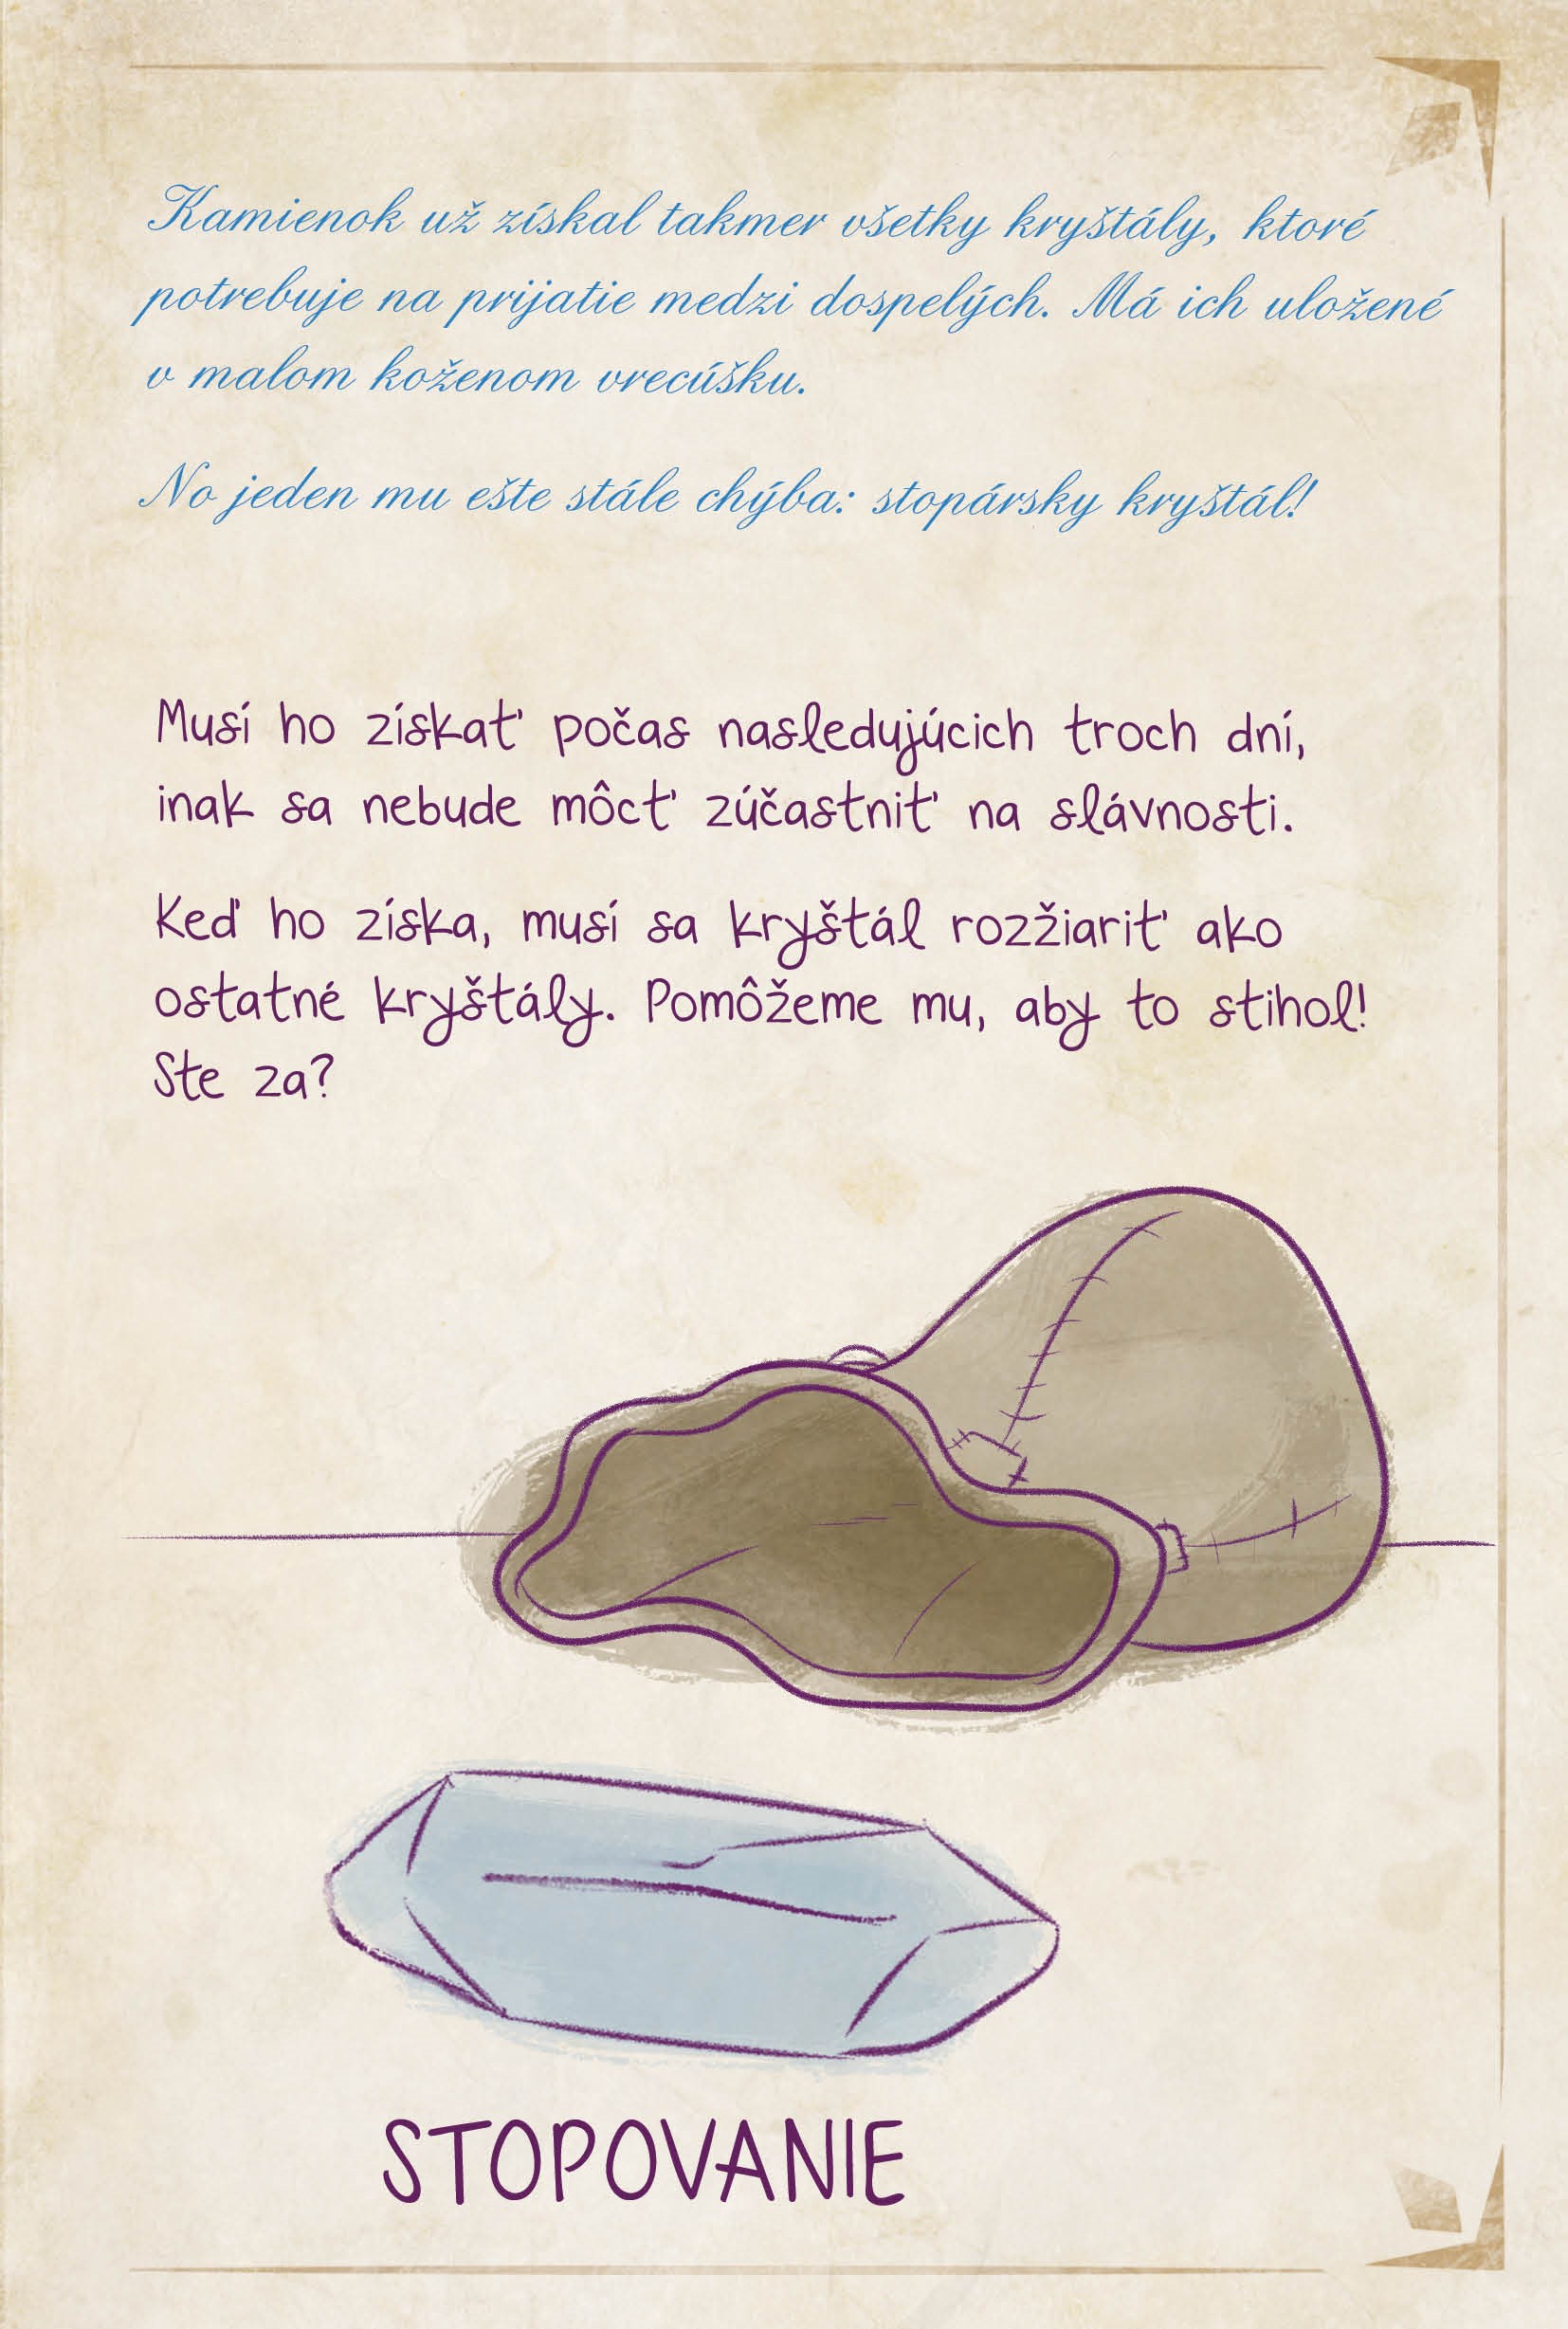 Kamienok už získal takmer všetky kryštály, ktoré
potrebuje na prijatie medzi dospelých. Má ich uložené
v malom koženom vrecúšku.
No jeden mu ešte stále chýba: stopársky kryštál!
Musí ho získať počas nasledujúcich troch dní,
inak sa nebude môcť zúčastniť na slávnosti.
Keď ho získa, musí sa kryštál rozžiariť ako
ostatné kryštály. Pomôžeme mu, aby to stihol!
Ste za?
STOPOVANIE